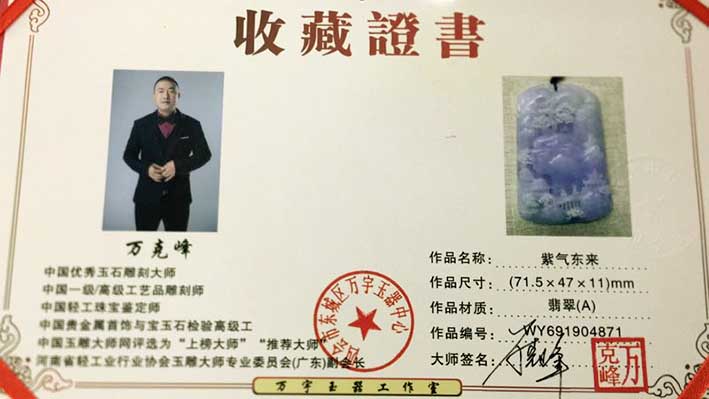 收藏證書
万克峰
中国优秀玉石雕刻大师
中国一级/高级工艺品雕刻师
中国轻工珠宝鉴定师
中国贵金属首饰与宝玉石检验高级工
中国玉雕大师网评选为“上榜大师”“推荐大师”
河南省轻工业行业协会玉雕大师专业委员会(广东)副会长
作品名称： 紫气东来
作品尺寸： (71.5×47×11)mm
作品材质： 翡翠(A)
作品编号： WY691904871
大师签名：
市东城区万宇玉器中心
万克峰
万宇玉器工作室